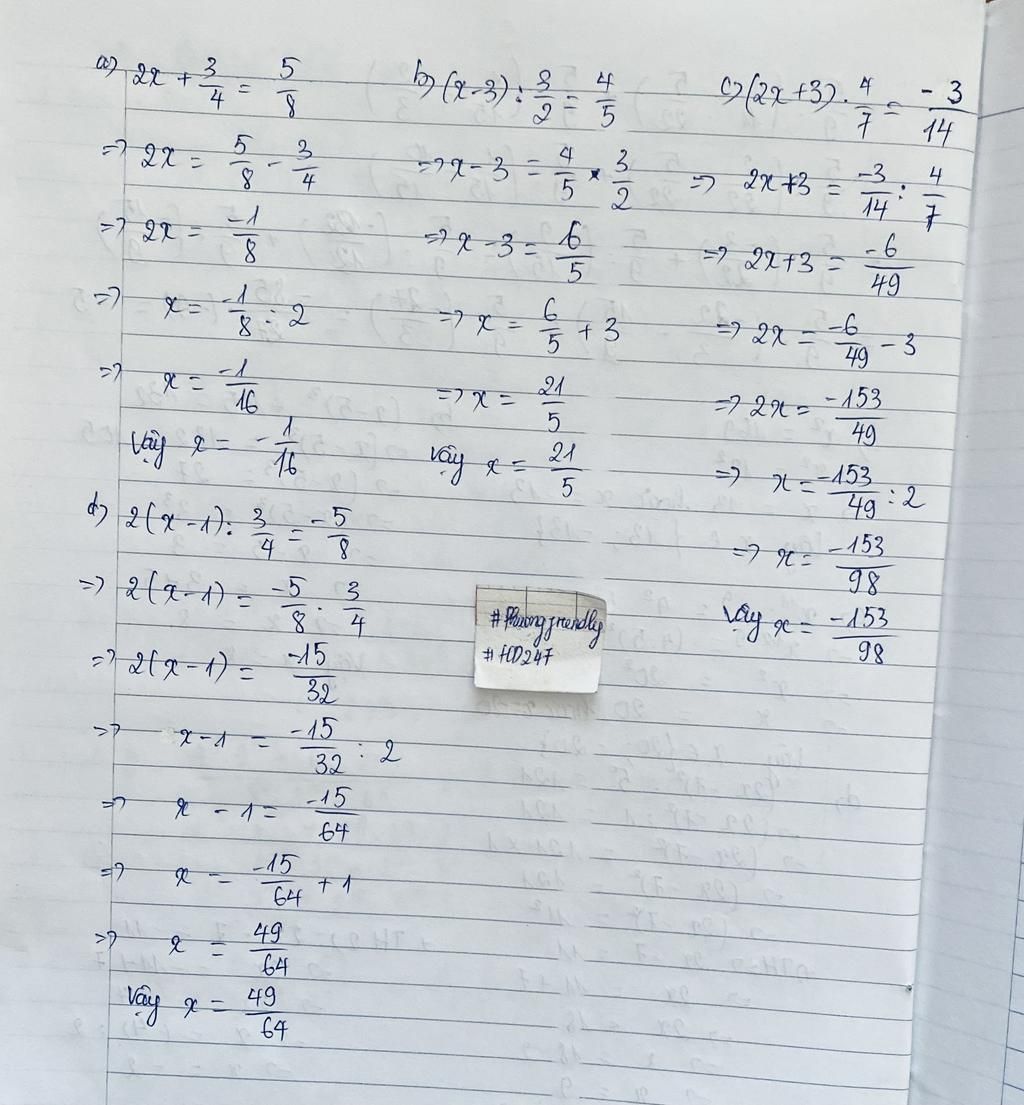 a) 2x + 3/4 = 5/8
=> 2x = 5/8 - 3/4
=> 2x = -1/8
=> x = -1/8 : 2
=> x = -1/16
Vậy x = -1/16
b) (x-3) : 3/2 = 4/5
=> x - 3 = 4/5 × 3/2
=> x - 3 = 6/5
=> x = 6/5 + 3
=> x = 21/5
Vậy x = 21/5
c) (2x+3) . 4/7 = -3/14
=> 2x+3 = -3/14 : 4/7
=> 2x+3 = -6/49
=> 2x = -6/49 - 3
=> 2x = -153/49
=> x = -153/49 : 2
=> x = -153/98
Vậy x = -153/98
d) 2(x-1) : 3/4 = -5/8
=> 2(x-1) = -5/8 . 3/4
=> 2(x-1) = -15/32
=> x-1 = -15/32 : 2
=> x - 1 = -15/64
=> x = -15/64 + 1
=> x = 49/64
Vậy x = 49/64
#Phuongfriendly
#HD247